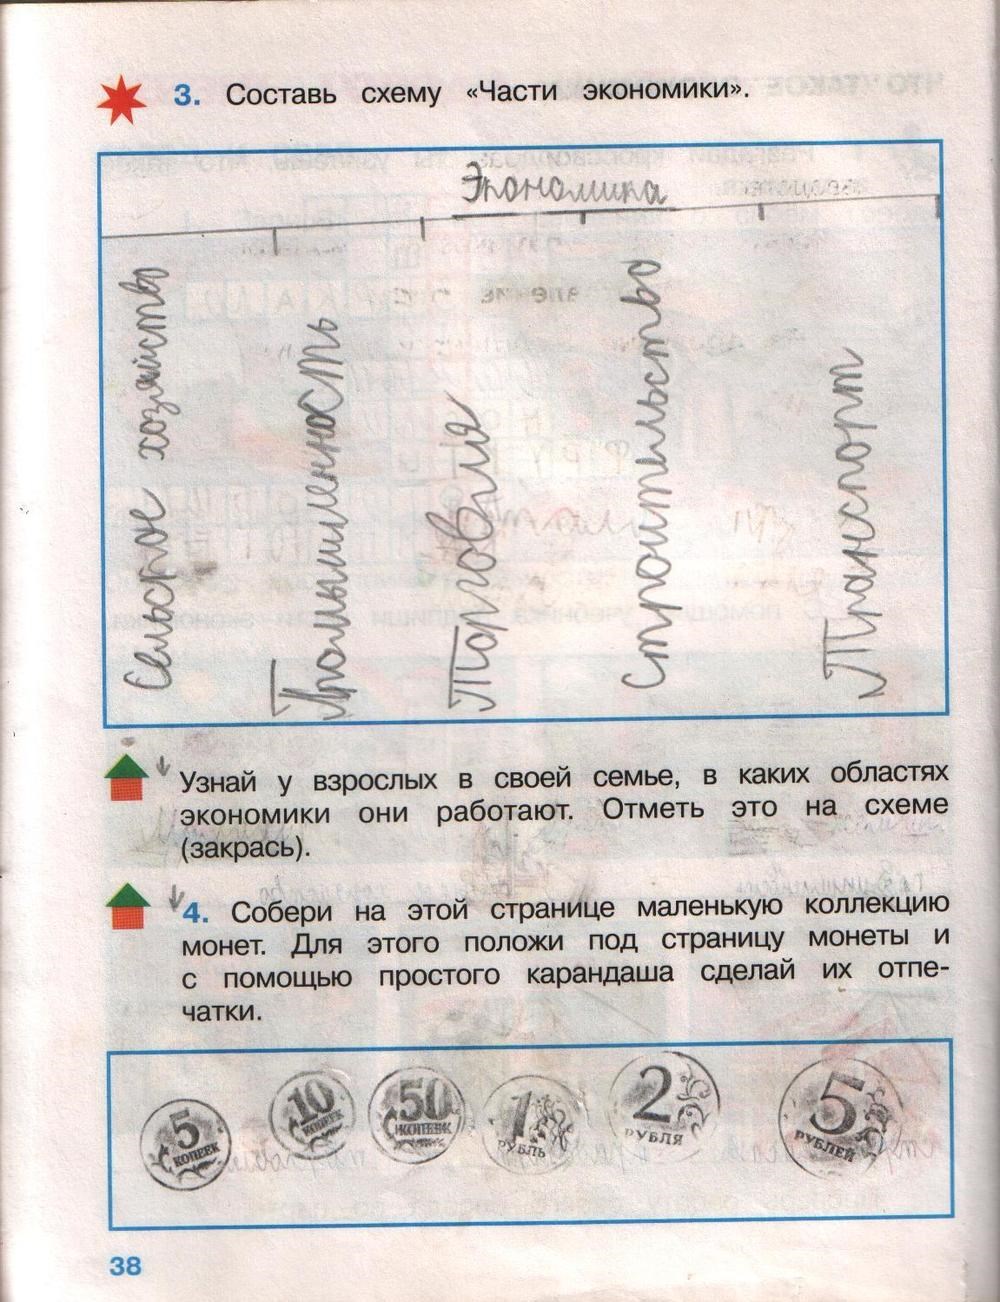 3. Составь схему «Части экономики».
Экономика
Сельское хозяйство
Промышленность
Торговля
Строительство
Транспорт
Узнай у взрослых в своей семье, в каких областях
экономики они работают. Отметь это на схеме
(закрась).
4. Собери на этой странице маленькую коллекцию
монет. Для этого положи под страницу монеты и
с помощью простого карандаша сделай их отпе-
чатки.
5
КОПЕЕК
10
КОПЕЕК
50
КОПЕЕК
1
РУБЛЬ
2
РУБЛЯ
5
РУБЛЕЙ
38